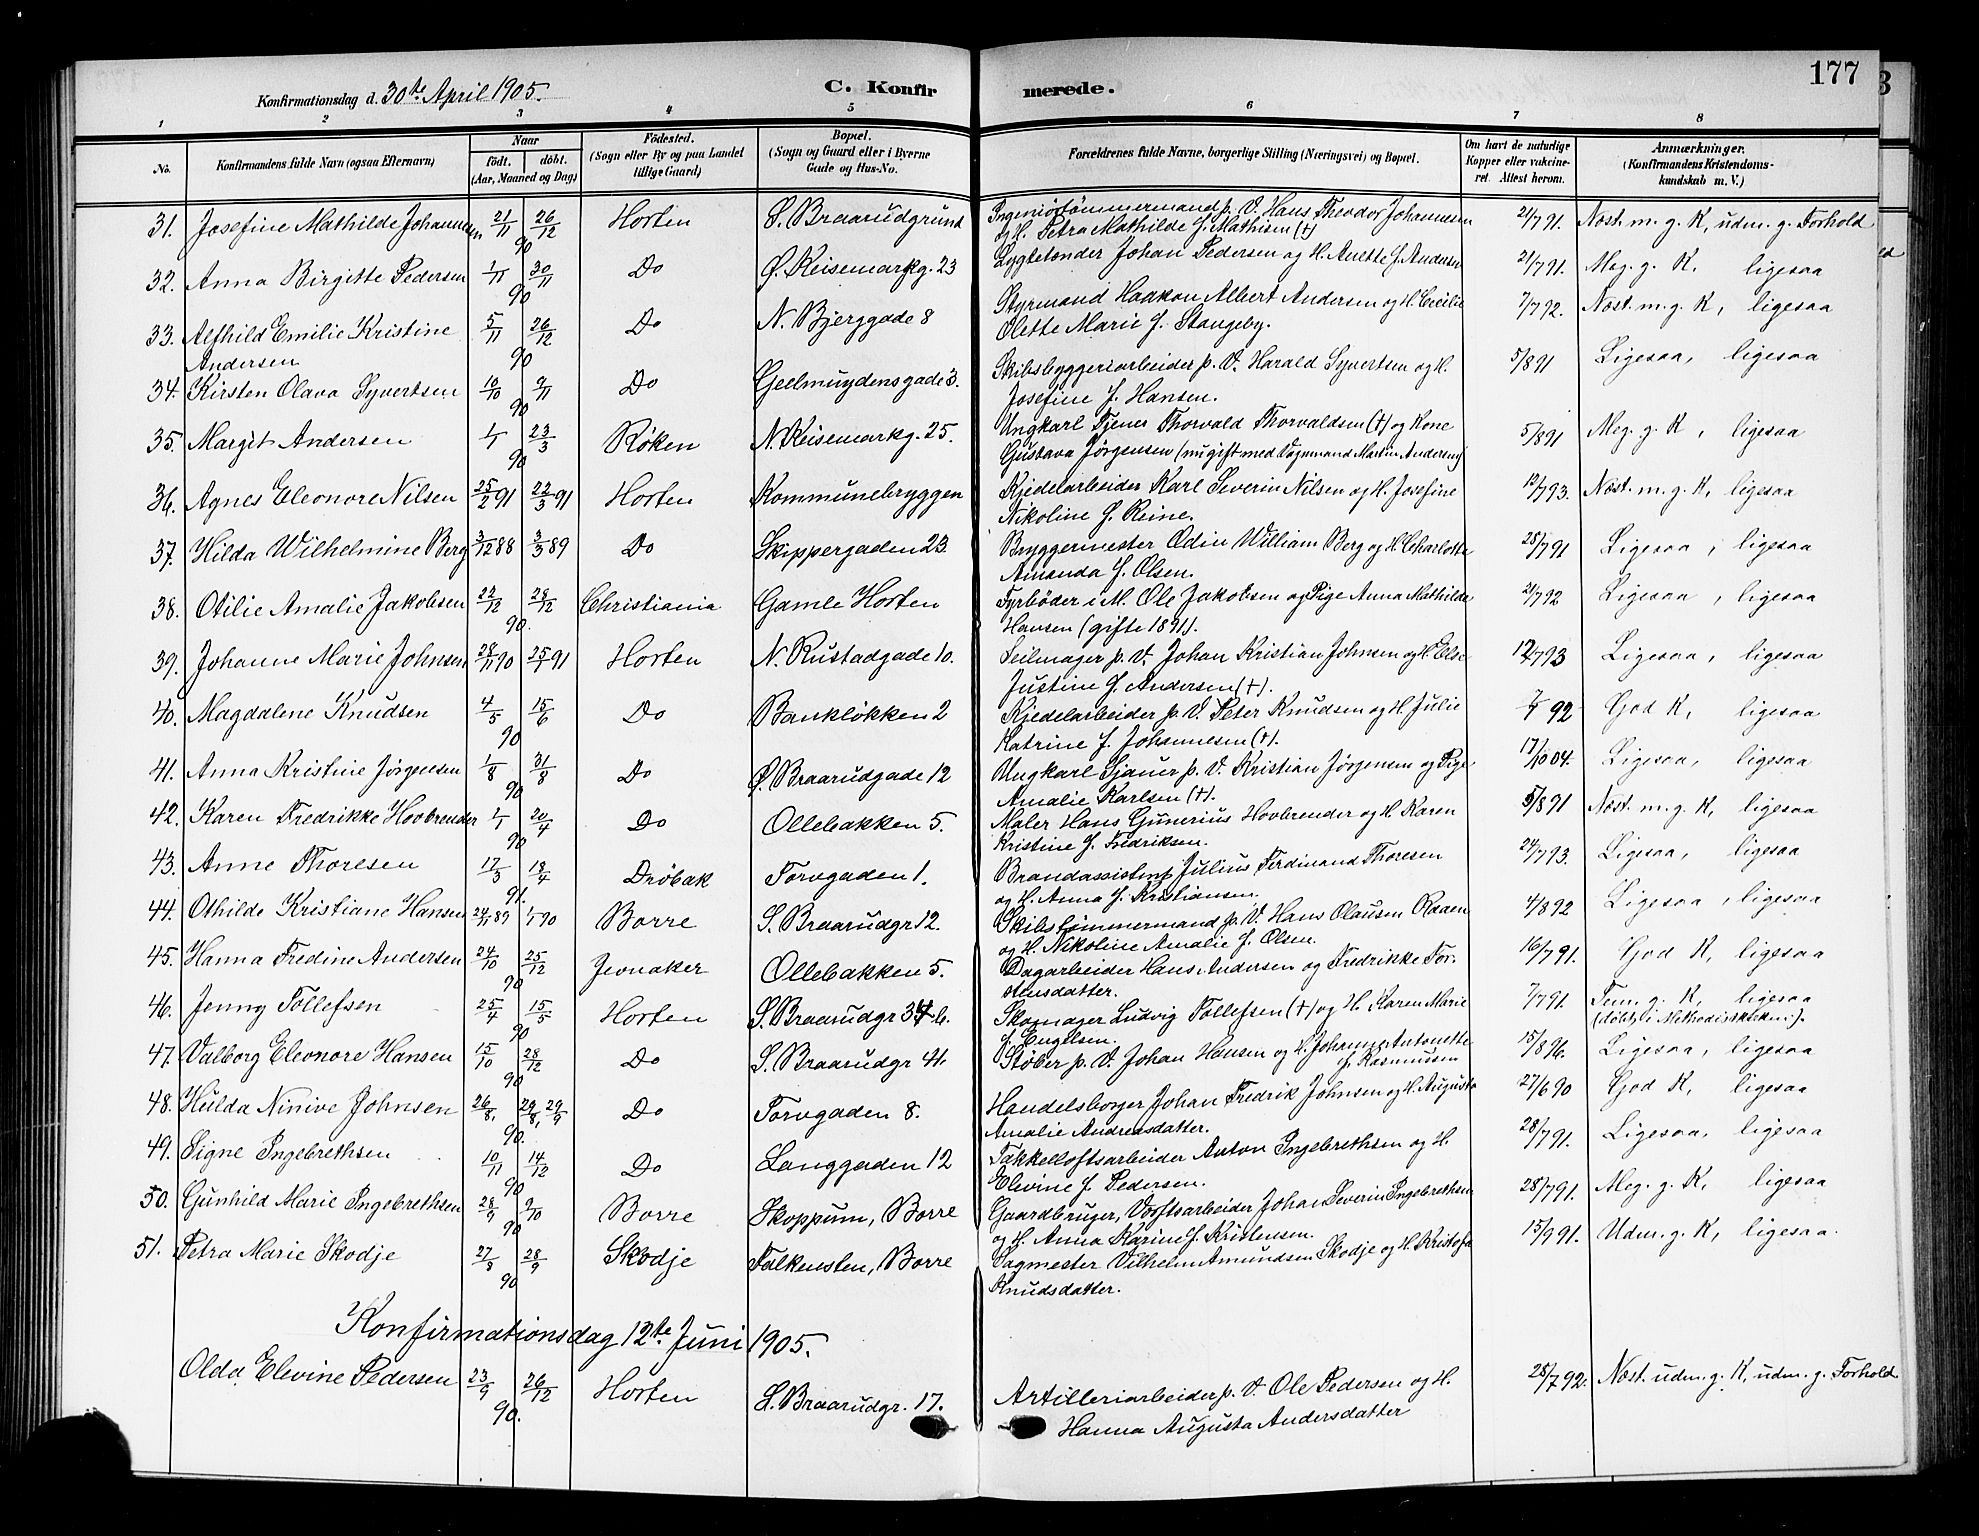 177
Konfirmationsdag d. 30te April 1905. C. Konfirmerede.
1 2 3 4 5 6 7 8
No. Konfirmandens fulde Navn (ogsaa Efternavn) Naar født. døbt. (Aar, Maaned og Dag) Fødested. (Sogn eller By og paa Landet tillige Gaard) Bopæl. (Sogn og Gaard eller i Byerne Gade og Hus-No. Forældrenes fulde Navne, borgerlige Stilling (Næringsvei) og Bopæl. Om havt de naturlige Kopper eller vakcineret. Attest herom. Anmærkninger. (Konfirmandens Kristendomskundskab m. V.)
31. Josefine Mathilde Johannesen 21/11 26/12 90 Horten S. Braarudgrund Ingeniørtømmermand p. V. Hans Theodor Johannesen 21/7 91. Næst. m. g. K, udm. g. Forhold
og H. Petra Mathilde f. Mathisen (†)
32. Anna Birgitte Pedersen 1/11 30/11 90 Do Ø. Keisemarkg. 23 Lygtetænder Johan Pedersen og H. Anette f. Andersen 21/7 91. Meg. g. K, ligesaa
33. Alfhild Emilie Kristine 5/11 26/12 90 Do N. Bjerggade 8 Styrmand Haakon Albert Andersen og H. Cecilie 7/7 92. Næst. m. g. K, ligesaa
Andersen Olette Marie f. Stangeby.
34. Kirsten Olava Syvertsen 10/10 9/11 90 Do Geelmuydensgade 3. Skibsbyggeriarbeider p. V. Harald Syvertsen og H. 5/8 91 Ligesaa, ligesaa
Josefine f. Hansen.
35. Margit Andersen 1/1 23/3 90 Røken N. Keisemarkg. 25. Ungkarl Tjener Thorvald Thorvaldsen (†) og Kone 5/8 91 Meg. g. K, ligesaa
Gustava Jørgensen (nu gift med Vognmand Martin Andersen)
36. Agnes Eleonore Nilsen 25/2 91 22/3 91 Horten Kommunebryggen Kjedelarbeider Karl Severin Nilsen og H. Josefine 12/7 93. Næst. m. g. K, ligesaa
Nikoline f. Reine.
37. Hilda Wilhelmine Berg 3/12 88 3/3 89 Do Skippergaden 23. Bryggermester Odin William Berg og H. Charlotte 28/7 91 Ligesaa, ligesaa
Amanda f. Olsen.
38. Otilie Amalie Jakobsen 22/12 28/12 90. Christiania Gamle Horten Fyrbøder i M. Ole Jakobsen og Pige Anna Mathilde 21/7 92 Ligesaa, ligesaa
Hansen (gifte 1891).
39. Johanne Marie Johnsen 28/11 90 25/1 91 Horten N. Rustadgade 10. Seilmager p. V. Johan Kristian Johnsen og H. Else 12/7 93 Ligesaa, ligesaa
Justine f. Andersen (†).
40. Magdalene Knudsen 4/5 15/6 90 Do Bankløkken 2 Kjedelarbeider p. V. Peter Knudsen og H. Julie 7/7 92 God K, ligesaa
Katrine f. Johannesen (†).
41. Anna Kristine Jørgensen 1/8 31/8 90 Do Ø. Braarudgade 12 Ungkarl Sjauer p. V. Kristian Jørgensen og Pige 17/10 04. Ligesaa, ligesaa
Amalie Karlsen (†).
42. Karen Fredrikke Hovbrender 1/1 20/4 90 Do Ollebakken 5. Maler Hans Gunerius Hovbrender og H. Karen 5/8 91 Næst. m. g. K, ligesaa
Kristine f. Fredriksen.
43. Anne Thoresen 17/3 18/4 91. Drøbak Torvgaden 1. Brandassistent Julius Ferdinand Thoresen 24/7 93. Ligesaa, ligesaa
og H. Anna f. Kristiansen.
44. Othilde Kristiane Hansen 24/11 89 1/1 90 Borre S. Braarudgr 12. Skibstømmermand p. V. Hans Olausen Raaen 4/8 92 Ligesaa, ligesaa
og H. Nikoline Amalie f. Olsen.
45. Hanna Fredine Andersen 24/10 25/12 90 Jevnaker Ollebakken 5. Dagarbeider Hans Andersen og Fredrikke Tor- 16/7 91. God K, ligesaa
stensdatter.
46. Jenny Tollefsen 25/4 15/5 90 Horten S. Braarudgr 34 b. Skomager Ludvig Tollefsen (†) og H. Karen Marie 7/7 91. Tem. g. K, ligesaa
f. Engelsen. (døbt i Methodistkirken).
47. Valborg Eleonore Hansen 15/10 28/12 90 Do S. Braarudgr 41. Støber p. V. Johan Hansen og H. Johanne Antonette 15/8 96. Ligesaa, ligesaa
f. Rasmussen
48. Hulda Ninive Johnsen 26/8, 29/8, 29/9 90. Do Torvgaden 8. Handelsborger Johan Fredrik Johnsen og H. Augusta 27/6 90 God K, ligesaa
Amalie Andreasdatter.
49. Signe Ingebrethsen 10/11 14/12 90 Do Langgaden 12 Takkelloftsarbeider Anton Ingebrethsen og H. 28/7 91. Ligesaa, ligesaa
Elevine f. Pedersen.
50. Gunhild Marie Ingebrethsen 28/9 9/10 90 Borre Skoppum, Borre Gaardbruger, Værftsarbeider Johan Severin Ingebrethsen 28/7 91. Meg. g. K, ligesaa
og H. Anna Karine f. Kristensen.
51. Petra Marie Skodje 27/8 28/9 90 Skodje Falkensten, Borre Sagmester Vilhelm Amundsen Skodje og H. Kristofa 15/9 91. Udm. g. K, ligesaa.
Knudsdatter.
Konfirmationsdag 12te Juni 1905.
Olda Elevine Pedersen 23/9 26/12 90. Horten S. Braarudgr. 17. Artilleriarbeider p. V. Ole Pedersen og H. 28/7 92. Næst. udm. g. K, udm. g. Forhold
Hanna Augusta Andersdatter